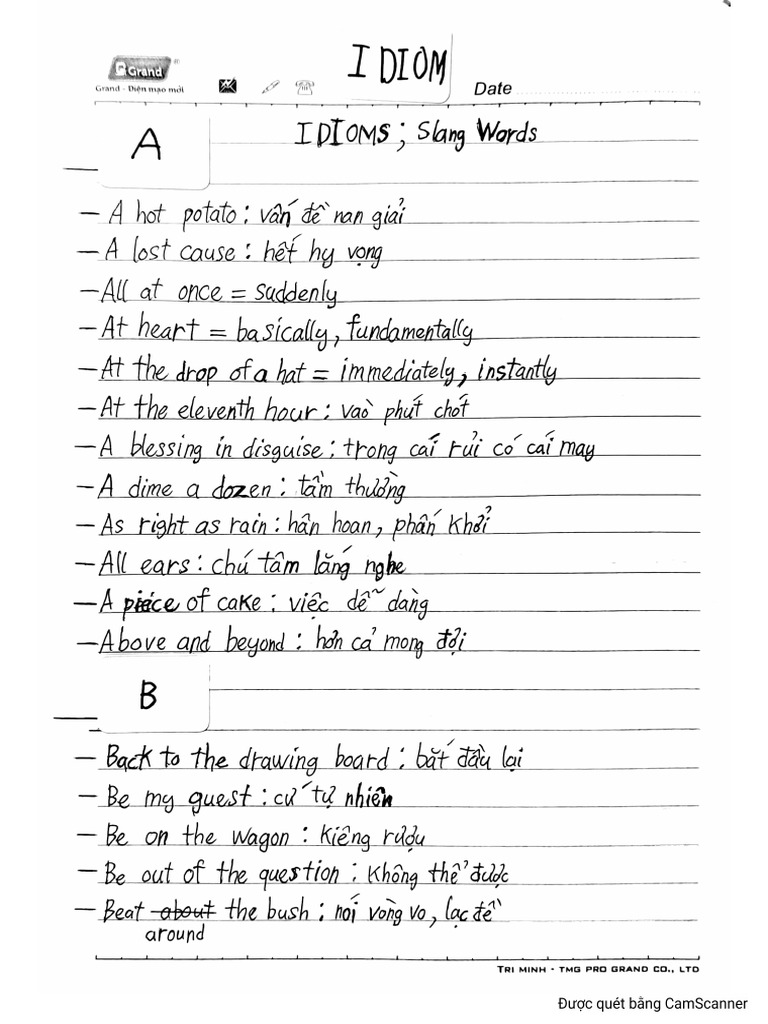 Grand
IDIOM
Grand - Diện mạo mới
Date
A
IDIOMS; Slang Words
- A hot potato: vấn đề nan giải
- A lost cause: hết hy vọng
- All at once = suddenly
- At heart = basically, fundamentally
- At the drop of a hat = immediately, instantly
- At the eleventh hour: vào phút chót
- A blessing in disguise: trong cái rủi có cái may
- A dime a dozen: tầm thường
- As right as rain: hân hoan, phấn khởi
- All ears: chú tâm lắng nghe
- A piece of cake: việc dễ dàng
- Above and beyond: hơn cả mong đợi
B
- Back to the drawing board: bắt đầu lại
- Be my guest: cứ tự nhiên
- Be on the wagon: kiêng rượu
- Be out of the question: không thể được
- Beat about the bush: nói vòng vo, lạc đề
around
TRI MINH - TMG PRO GRAND CO., LTD
Được quét bằng CamScanner